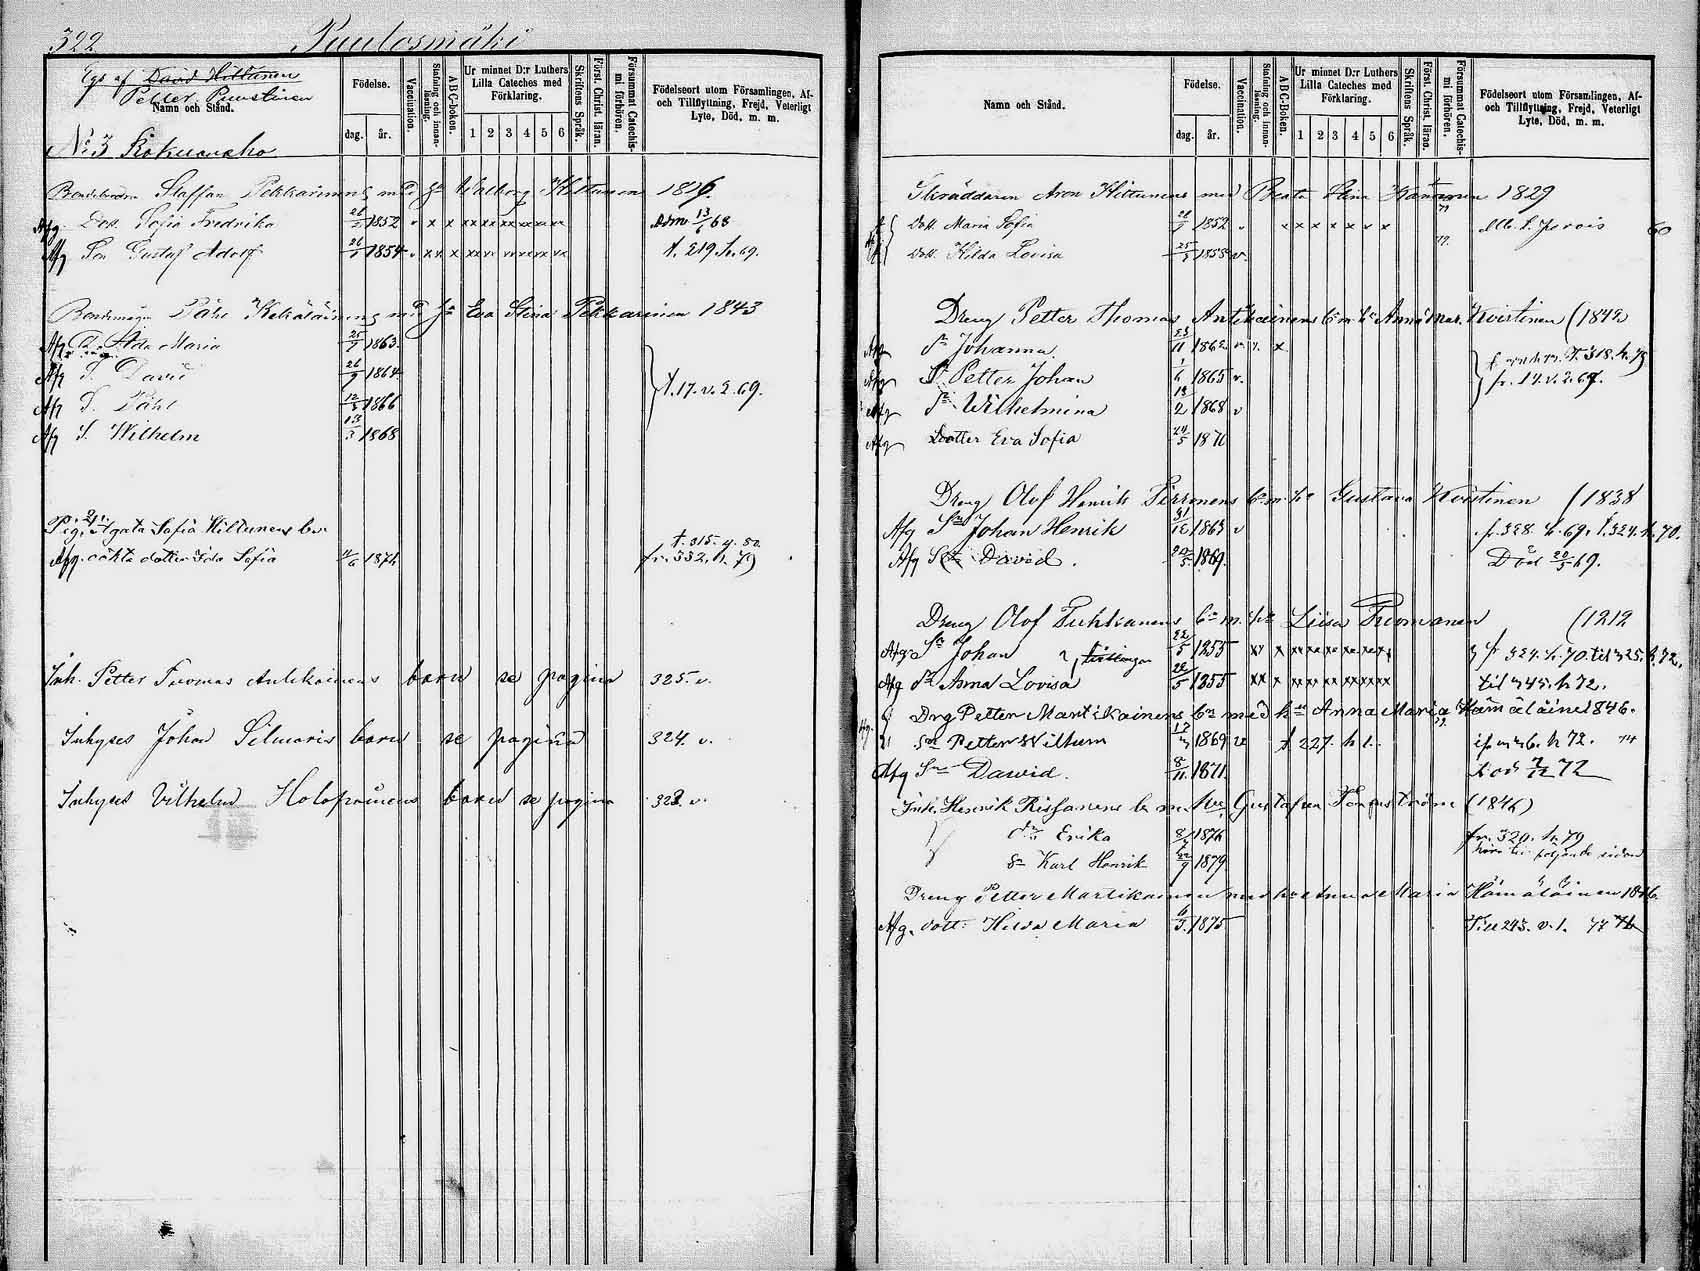 322 Puutosmäki
Egs af David Hiltunen
Petter Puustinen
Namn och Stånd.
Födelse.
dag. år.
Vaccination.
Stafning och innan-läsning.
A B C-boken.
Ur minnet D:r Luthers Lilla Cateches med Förklaring.
1 2 3 4 5 6
Skriftens Språk.
Först. Christ. läran.
Försummat Catechis-mi förhören.
Födelseort utom Församlingen, Af- och Tillflyttning, Frejd, Veterligt Lyte, Död, m. m.
No 3 Kokuonaho
Staffan Pekkarinens med hu Walborg Hiltunen 1816.
Afg. Dott. Sofia Fredrika 26/2 1852 v x x xxxxxxxxxxx Adm 13/6 68
Afg Son Gustaf Adolf 26/ 1854 v xx x xxxxxxxxxxx t. 219. h. 69.
Påhl Kekäläinens med hu Eva Stina Pekkarinen 1843
Afg D. Ada Maria 25/ 1863.
Afg S. David 26/9 1864
Afg S. Påhl 12/3 1866 t. 17. v. 2. 69.
Afg S. Wilhelm 13/3 1868
Pig. Agata Sofia Hiltunens b:n
Afg. oäkta dotter Ida Sofia 11/6 1874 t. 315. 4. 80. fr. 332. h. 79
Inh. Petter Thomas Antikainens barn se pagina 325. v.
Inhyses Johan Silmaris barn se pagina 324. v.
Inhyses Vilhelm Holopainens barn se pagina 323. v.
Namn och Stånd.
Födelse.
dag. år.
Vaccination.
Stafning och innan-läsning.
A B C-boken.
Ur minnet D:r Luthers Lilla Cateches med Förklaring.
1 2 3 4 5 6
Skriftens Språk.
Först. Christ. läran.
Försummat Catechis-mi förhören.
Födelseort utom Församlingen, Af- och Tillflyttning, Frejd, Veterligt Lyte, Död, m. m.
Skräddaren Aron Hiltunens med Beata Stina 1829
Dott. Maria Sofia 1852 v x x x x x x x
Dott. Hilda Lovisa 25/5 1858 v.
Dreng Petter Thomas Antikainens b:n m. hu Anna Mar. Koistinen (1842
Afg D:r Johanna. 23/11 1862 v. x
Afg S. Petter Johan 1/6 1865 v. fr. 17. v. 2. 67.
Afg D:r Wilhelmina 13/2 1868 v
Afg Dotter Eva Sofia 24/5 1871
Dreng Olof Henrik Pirronens b:n m. hu Gustava Koistinen (1838
Afg S:n Johan Henrik 31/12 1863 v fr. 328. h. 69. t. 324. h. 70.
Afg S:n David. 20/5 1869. Död 20/5 69.
Dreng Olof Tuhkanens b:n m. hu Liisa (1212
Afg S:n Johan } tvillingar 22/5 1855 xx x xxxxxxxxxx fr 324. h. 70. til 325. h. 72.
Afg D:r Anna Lovisa 22/5 1855 xx x xxxxxxxxxx til 345. h 72.
Drg Petter Martikainens b:n med hu Anna Maria Hämäläinen 1846.
S:n Petter Wilhelm 17/ 1869 t 227. h 1. h 72.
Afg S:n Dawid. 8/11 1871 död 7/12 72
Inh. Henrik Rissanens b. m. hu Gustafva (1846)
d:r Erika 8/ 1876 fr. 320. h. 79
S:n Karl Henrik 22/9 1879 följande sidan
Dreng Petter Martikainen med hu Anna Maria Hämäläinen 1846.
Afg. dott: Hilda Maria 6/3. 1875 Till 243. v. 1. 77